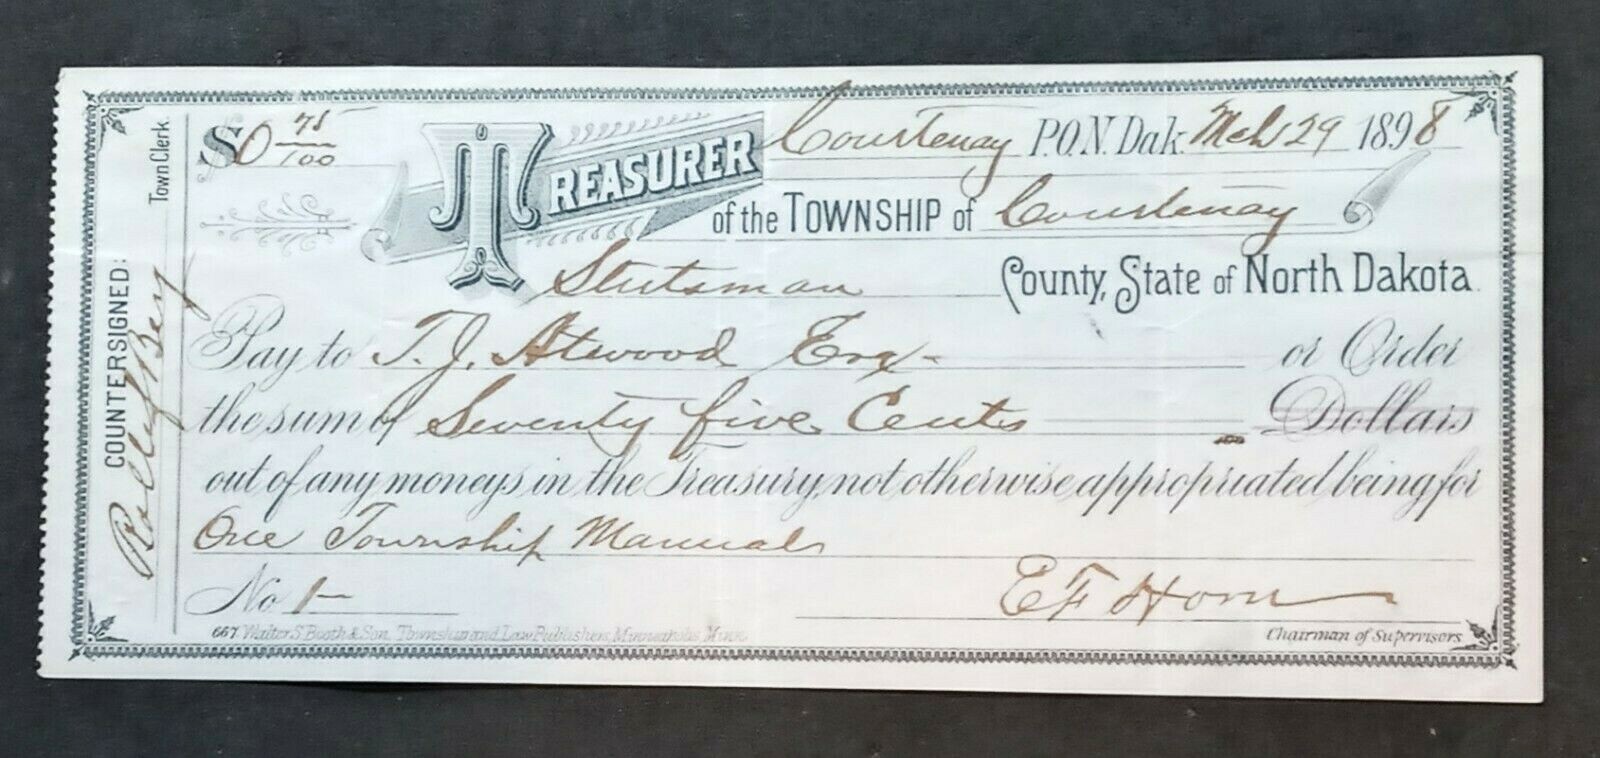 $0 75/100
TREASURER
Courtenay P.O. N. Dak. Mch 29 1898
of the TOWNSHIP of Courtenay
Stutsman County, State of North Dakota.
Pay to T. J. Atwood Esq. or Order
the sum of Seventy five Cents Dollars
out of any moneys in the Treasury, not otherwise appropriated being for
One Township Manual
No 1
E F Horn
Chairman of Supervisors
667 Walter S. Booth & Son, Township and Law Publishers, Minneapolis, Minn.
COUNTERSIGNED:
Town Clerk.